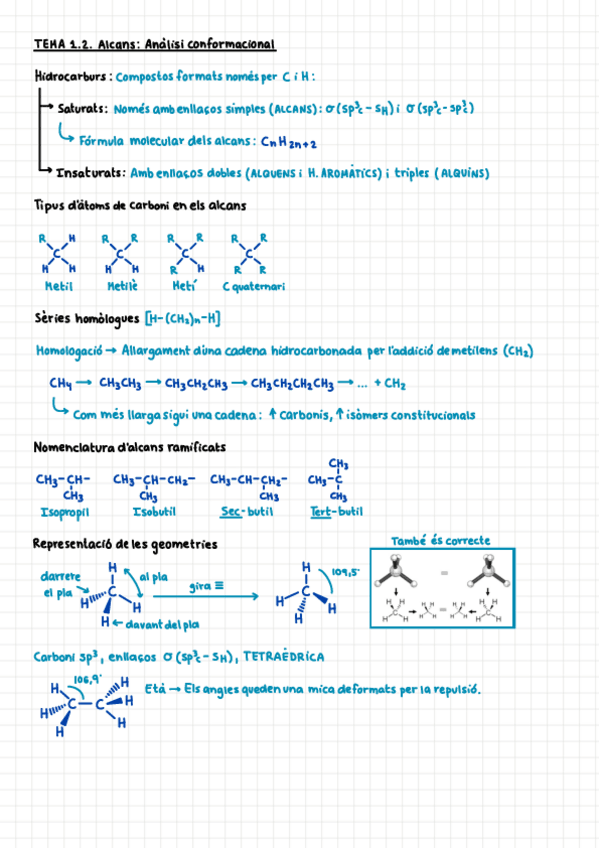 TEMA 1.2. Alcans: Anàlisi conformacional
Hidrocarburs: Compostos formats només per C i H:
Saturats: Només amb enllaços simples (ALCANS): σ(sp³c - sH) i σ(sp³c - sp³c)
Fórmula molecular dels alcans: CnH2n+2
Insaturats: Amb enllaços dobles (ALQUENS i H. AROMÀTICS) i triples (ALQUINS)
Tipus d'àtoms de carboni en els alcans
R H R R R R R R
C C C C
H H H H R H R R
Metil Metilè Metí C quaternari
Sèries homòlogues [H-(CH2)n-H]
Homologació → Allargament d'una cadena hidrocarbonada per l'addició de metilens (CH2)
CH4 → CH3CH3 → CH3CH2CH3 → CH3CH2CH2CH3 → ... + CH2
Com més llarga sigui una cadena: ↑ carbonis, ↑ isòmers constitucionals
Nomenclatura d'alcans ramificats
CH3
CH3-CH- CH3-CH-CH2- CH3-CH-CH2- CH3-C
CH3 CH3 CH3 CH3
Isopropil Isobutil Sec-butil Tert-butil
Representació de les geometries
També és correcte
darrere el pla
H
al pla
C
H
H
H ← davant del pla
gira ≡
H
109,5°
C
H
H
H
=
=
Carboni sp³, enllaços σ(sp³c - sH), TETRAÈDRICA
106,9°
H H
H C - C H
H H
Età → Els angles queden una mica deformats per la repulsió.